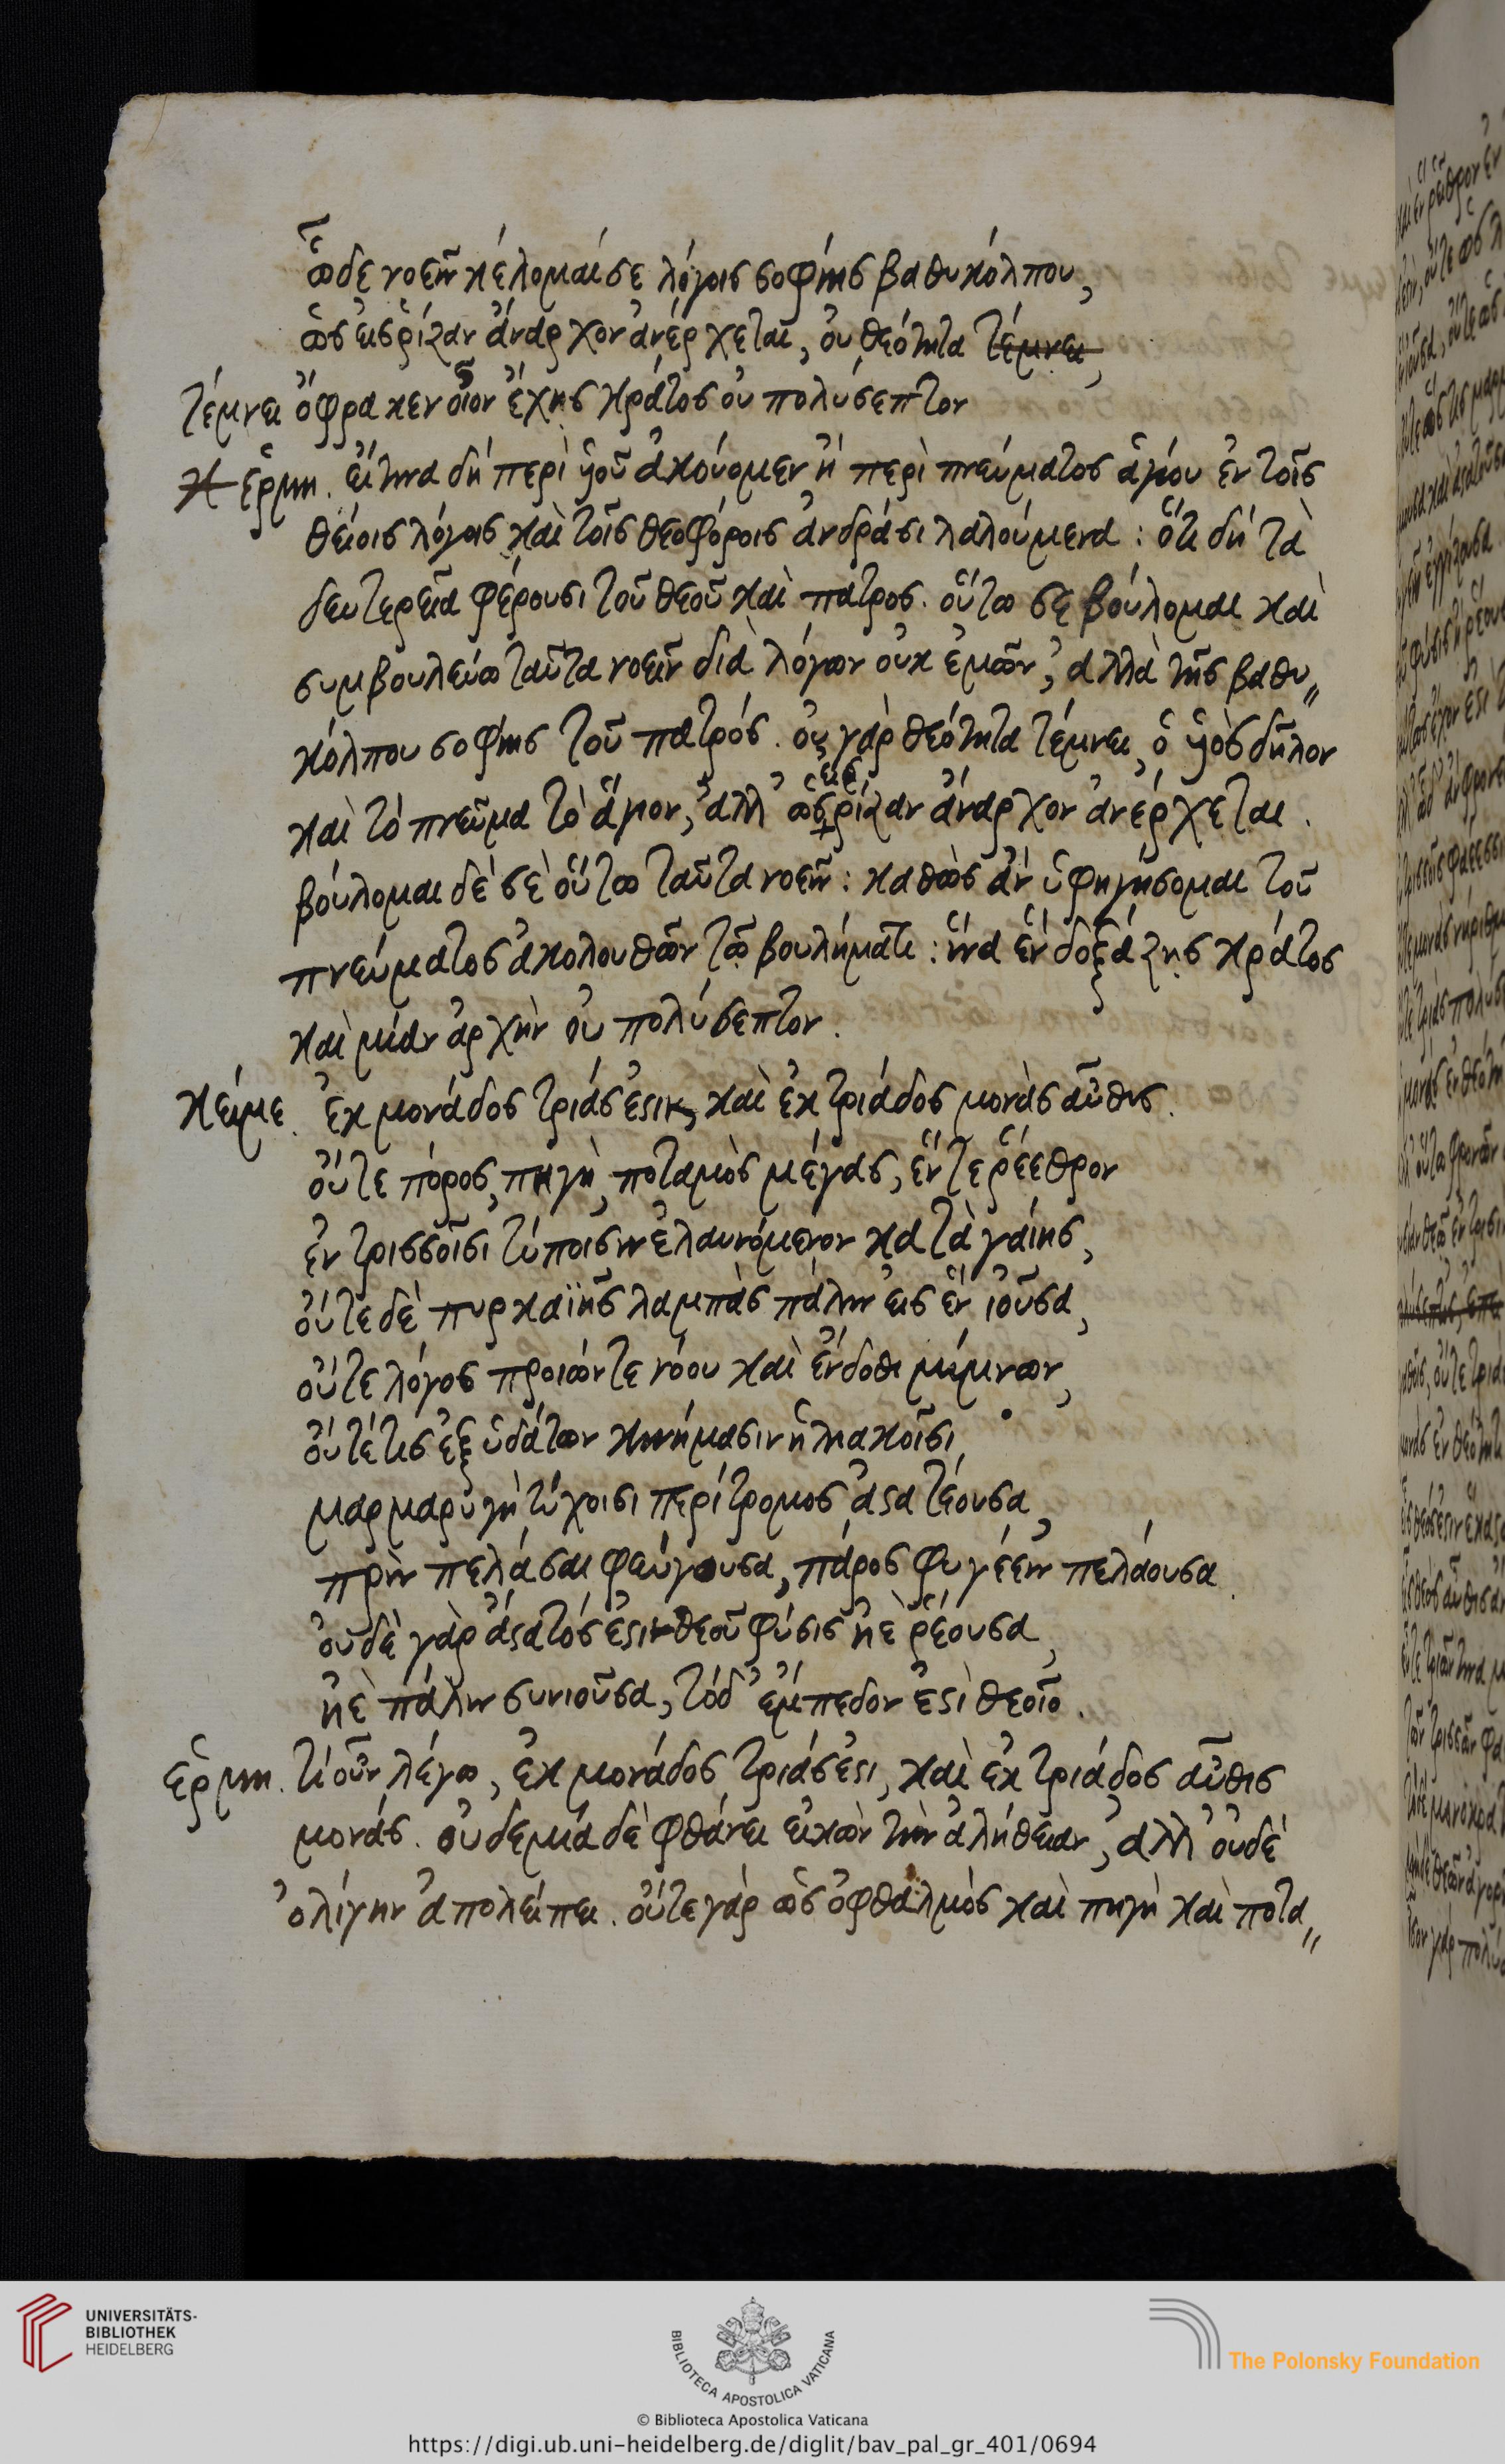 ὧδε νοεῖν κέλομαί σε λόγοις σοφίης βαθυκόλπου,
ὡς εἰς ῥίζαν ἄναρχον ἀνέρχεται, οὐ θεότητα τέμνει,
τέμνει ὄφρα κεν οἷον ἔχης κράτος οὐ πολύσεπτον
ἑρμη. εἴ τινα δὴ περὶ υἱοῦ ἀκούομεν ἢ περὶ πνεύματος ἁγίου ἐν τοῖς
θείοις λόγοις καὶ τοῖς θεοφόροις ἀνδράσι λαλούμενα : ὅτι δὴ τὰ
δευτερεῖα φέρουσι τοῦ θεοῦ καὶ πατρος. οὕτω σε βούλομαι καὶ
συμβουλεύω ταῦτα νοεῖν διὰ λόγων οὐκ ἐμῶν, ἀλλὰ τῆς βαθυ〃
κόλπου σοφίης τοῦ πατρός. οὐ γὰρ θεότητα τέμνει, ὁ υἱὸς δῆλον
καὶ τὸ πνεῦμα τὸ ἅγιον, ἀλλ' ὡς εἰς ῥίζαν ἄναρχον ἀνέρχεται.
βούλομαι δὲ σὲ οὕτω ταῦτα νοεῖν : καθὼς ἂν ὑφηγήσομαι τοῦ
πνεύματος ἀκολουθῶν τῶ βουλήματι : ἵνα ἓν δοξάζης κράτος
καὶ μίαν ἀρχὴν οὐ πολύσεπτον.
κείμε. ἐκ μονάδος τριάς ἐστι, καὶ ἐκ τριάδος μονὰς αὖθις.
οὔτε πόρος, πηγὴ, ποταμὸς μέγας, ἕν τε ῥέεθρον
ἐν τρισσοῖσι τύποισιν ἐλαυνόμενον κατὰ γαίης,
οὔτε δὲ πυρκαϊῆς λαμπὰς πάλιν εἰς ἓν ἰοῦσα,
οὔτε λόγος προιών τε νόου καὶ ἔνδοθι μίμνων,
οὔτέ τις ἐξ ὑδάτων κινήμασιν ἡλιακοῖσι
μαρμαρυγὴ τύχοισι περίτρομος ἀστατέουσα,
πρὶν πελάσαι φεύγουσα, πάρος φυγέειν πελάουσα.
οὐδὲ γὰρ ἄστατός ἐστι θεοῦ φύσις ἠὲ ῥέουσα,
ἠὲ πάλιν συνιοῦσα, τόδ' ἔμπεδον ἐστὶ θεοῖο.
ἑρμη. τί οὖν λέγω, ἐκ μονάδος τριάς ἐστι, καὶ ἐκ τριάδος αὖθις
μονάς. οὐδεμία δὲ φθάνει εἰκὼν τὴν ἀλήθειαν, ἀλλ' οὐδέ
ὀλίγην ἀπολείπει. οὔτε γὰρ ὡς ὀφθαλμὸς καὶ πηγὴ καὶ ποτα〃
UNIVERSITÄTS-
BIBLIOTHEK
HEIDELBERG
BIBLIOTECA APOSTOLICA VATICANA
The Polonsky Foundation
© Biblioteca Apostolica Vaticana
https://digi.ub.uni-heidelberg.de/diglit/bav_pal_gr_401/0694